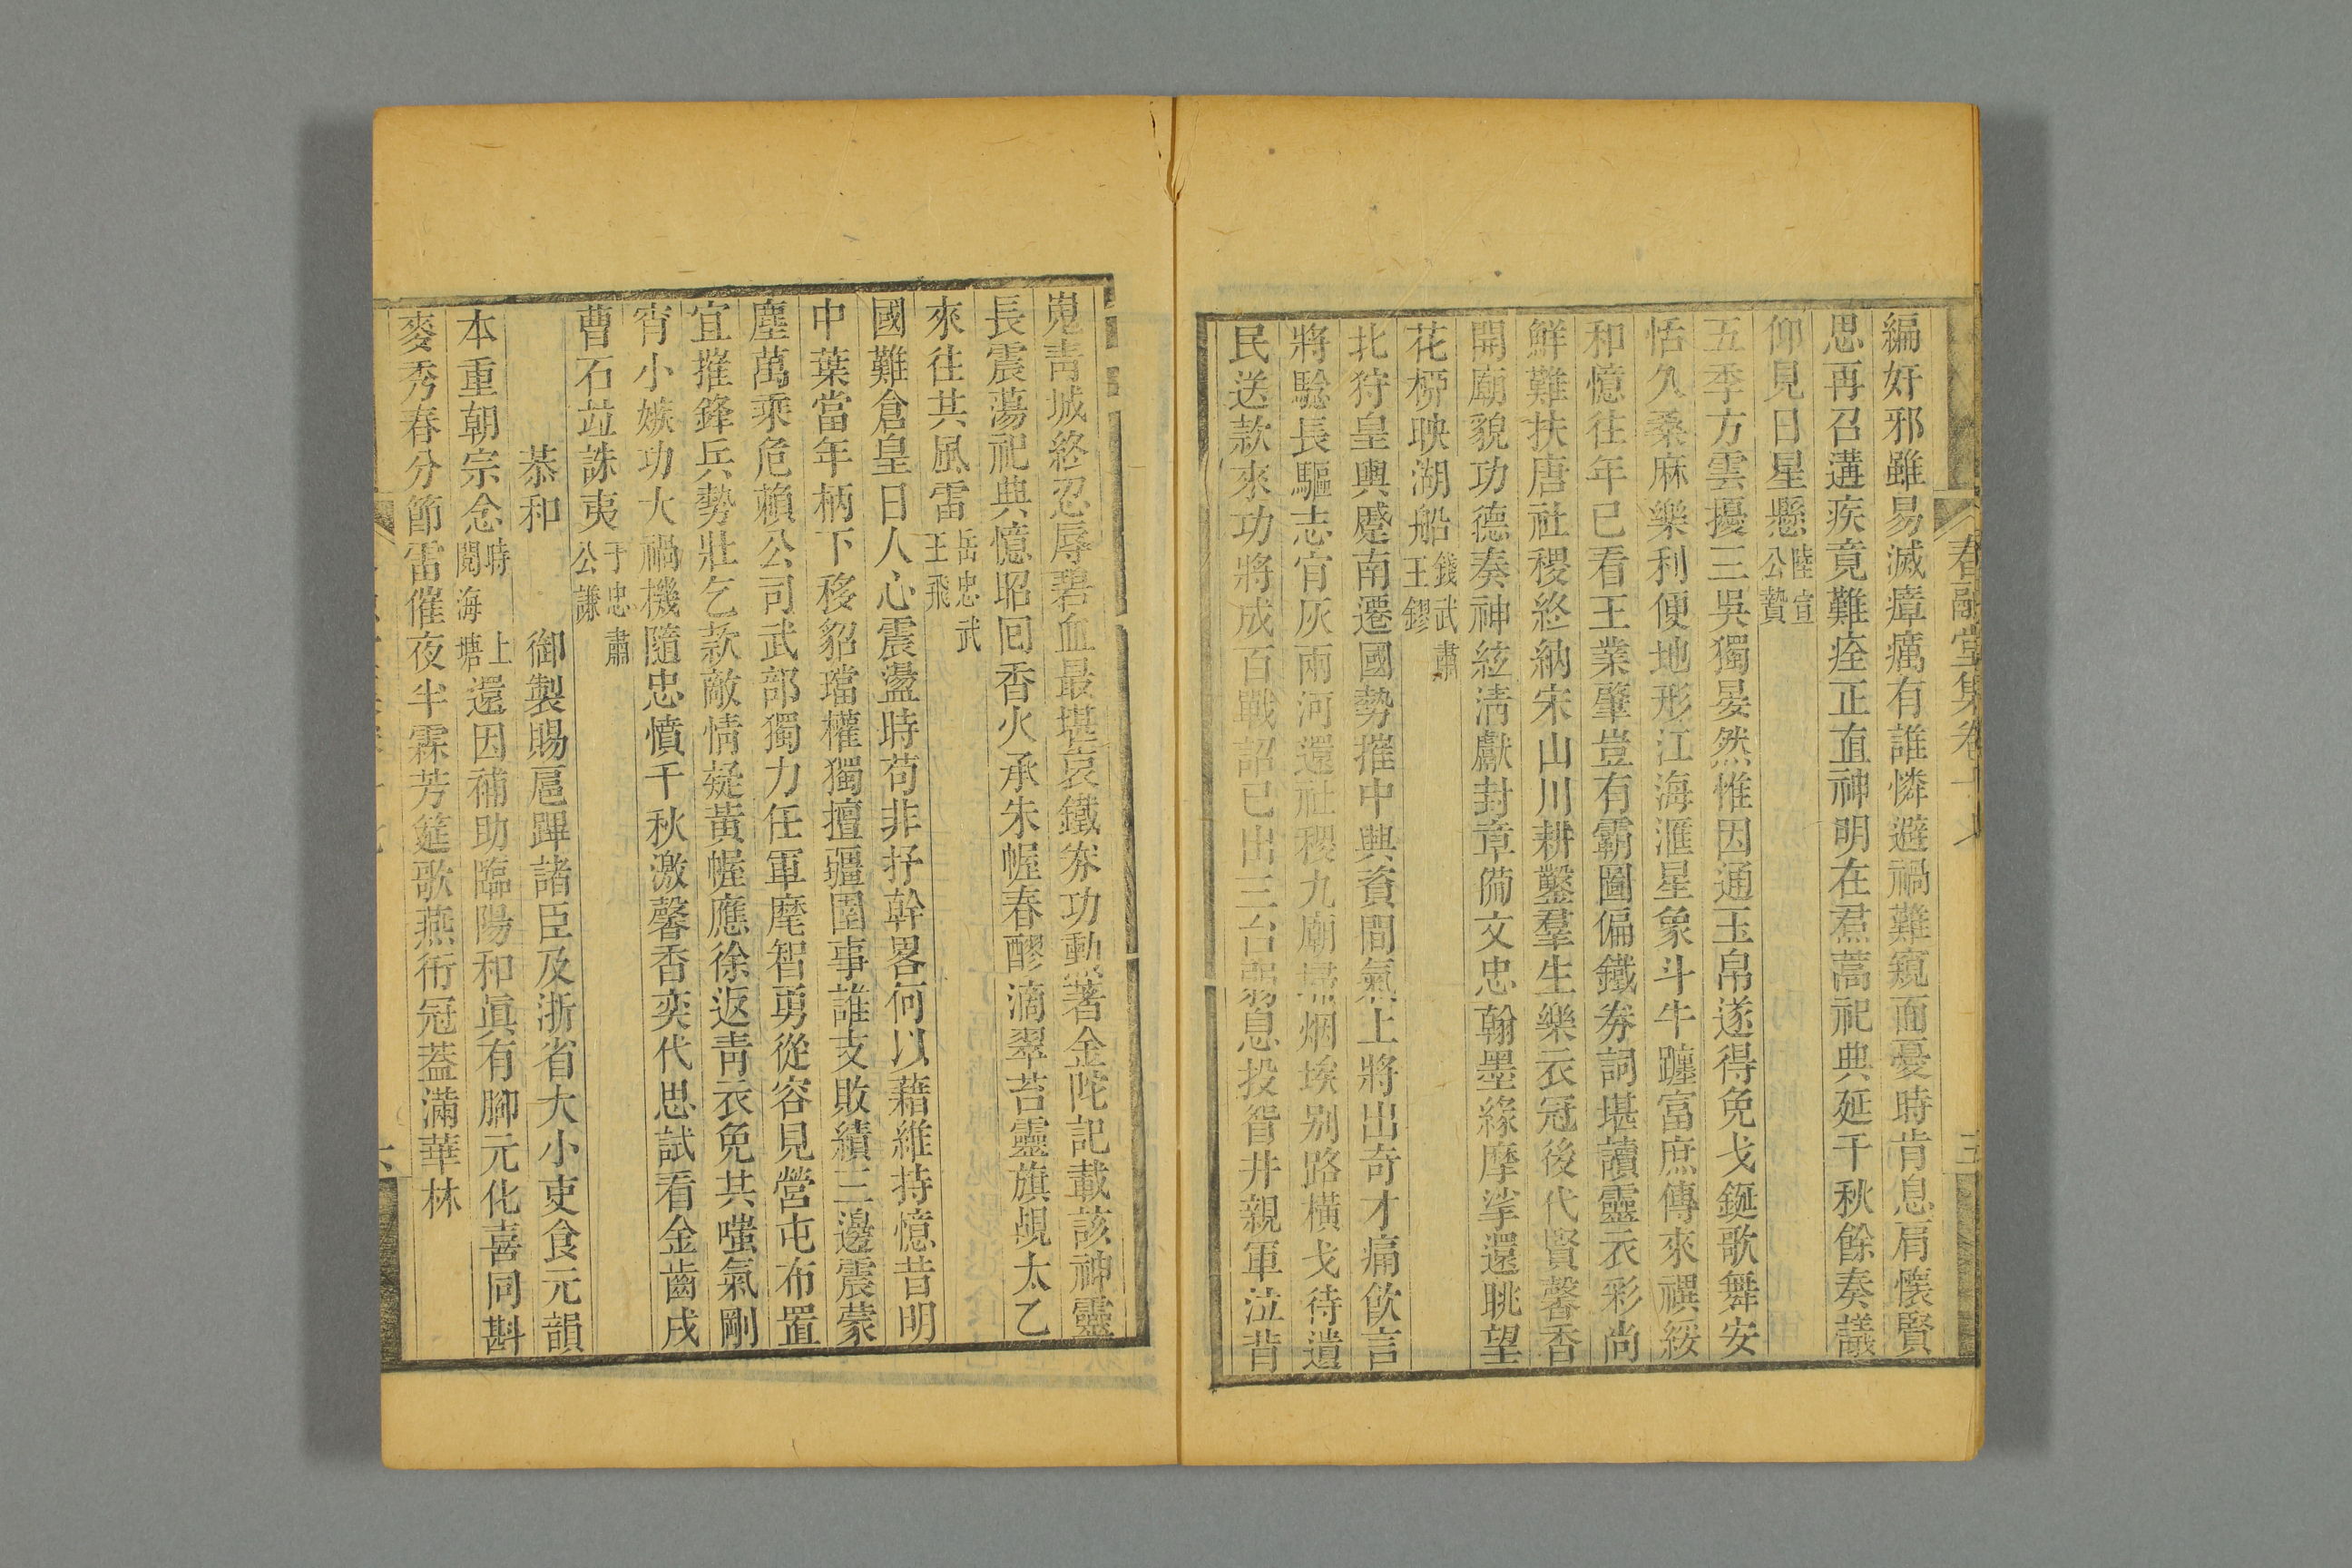 春融堂集卷十
三
編奸邪雖易滅瘴癘有誰憐避禍難窺面憂時肯息肩懷賢
思再召遘疾竟難痊正直神明在焄蒿祀典延千秋餘奏議
仰見日星懸陸宣公贄
五季方雲擾三吳獨晏然惟因通玉帛遂得免戈鋋歌舞安
恬久桑麻樂利便地形江海滙星象斗牛躔富庶傳來禩綏
和憶往年已看王業肇豈有霸圖偏鐵券詞堪讀靈衣彩尚
鮮難扶唐社稷終納宋山川耕鑿羣生樂衣冠後代賢馨香
開廟貌功德奏神絃淸獻封章備文忠翰墨緣摩挲還眺望
花柳映湖船錢武肅王鏐
北狩皇輿蹙南遷國勢摧中興資間氣上將出奇才痛飮言
將驗長驅志肯灰兩河還社稷九廟埽烟埃别路橫戈待遺
民送款來功將成百戰詔已出三台弱息投眢井親軍泣背
嵬靑城終忍辱碧血最堪哀鐵券功勳著金陀記載該神靈
長震蕩祀典憶昭囘香火承朱幄春醪滴翠苔靈旗覘太乙
來往共風雷岳忠武王飛
國難倉皇日人心震盪時苟非抒幹畧何以藉維持憶昔明
中葉當年柄下移貂璫權獨擅疆圉事誰支敗績三邊震蒙
塵萬乘危賴公司武部獨力任軍麾智勇從容見營屯布置
宜摧鋒兵勢壯乞款敵情疑黃幄應徐返靑衣免共嗤氣剛
宵小嫉功大禍機隨忠憤千秋激馨香奕代思試看金齒戍
曹石竝誅夷于忠肅公謙
恭和　御製賜扈蹕諸臣及浙省大小吏食元韻
本重朝宗念時上閱海塘還因補助臨陽和眞有腳元化喜同斟
麥秀春分節雷催夜半霖芳筵歌燕衎冠蓋滿華林